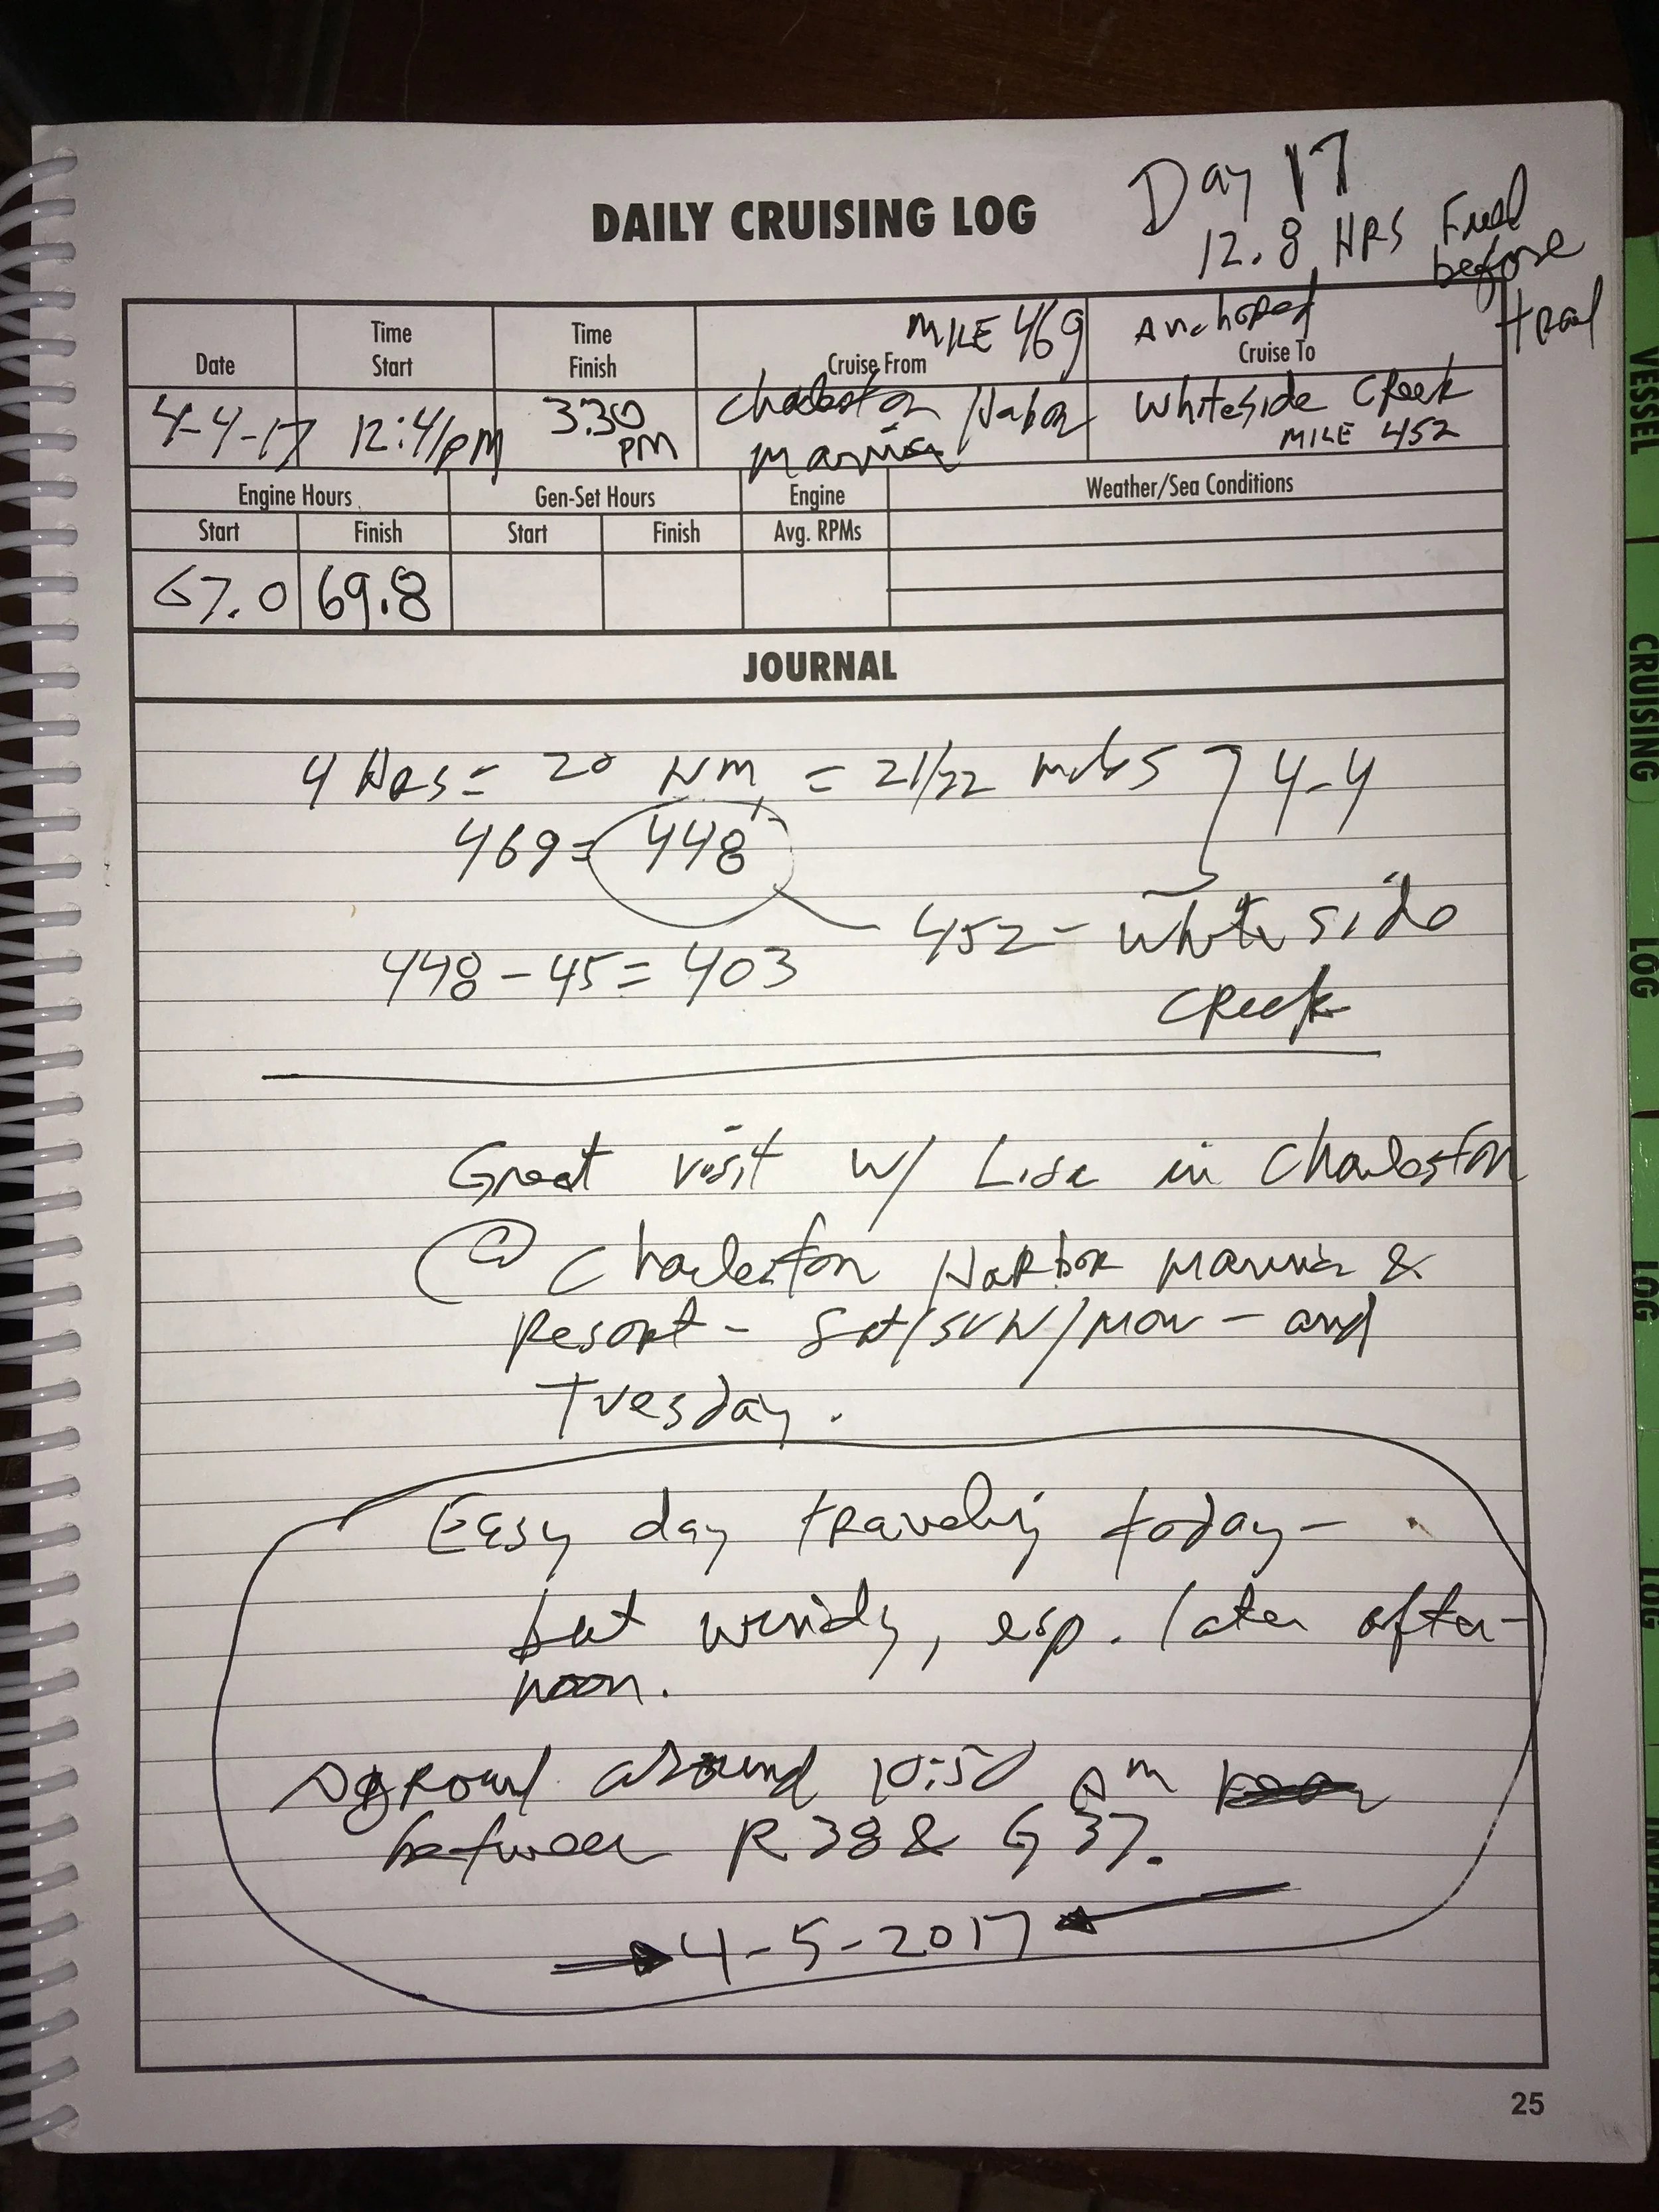 Day 17
DAILY CRUISING LOG
12.8 HRS Fuel
before
Date
Time
Start
Time
Finish
MILE 469
Cruise From
Anchored
Cruise To
4-4-17
12:41pm
3:30
PM
Charleston Harbor
Marina
Whiteside Creek
MILE 452
Engine Hours
Gen-Set Hours
Engine
Weather/Sea Conditions
Start
Finish
Start
Finish
Avg. RPMs
67.0
69.8
JOURNAL
4 HRS = 20 NM = 21/22 miles 4-4
469 = 448
452 - White side
Creek
448 - 45 = 403
Great visit w/ Lisa in Charleston
@ Charleston Harbor Marina &
Resort - Sat/SUN/Mon - and
Tuesday.
Easy day traveling today -
but windy, esp. later after-
noon.
Aground around 10:50 Am
between R38 & G 37.
4-5-2017
25
VESSEL
CRUISING
LOG
LOG
LOG